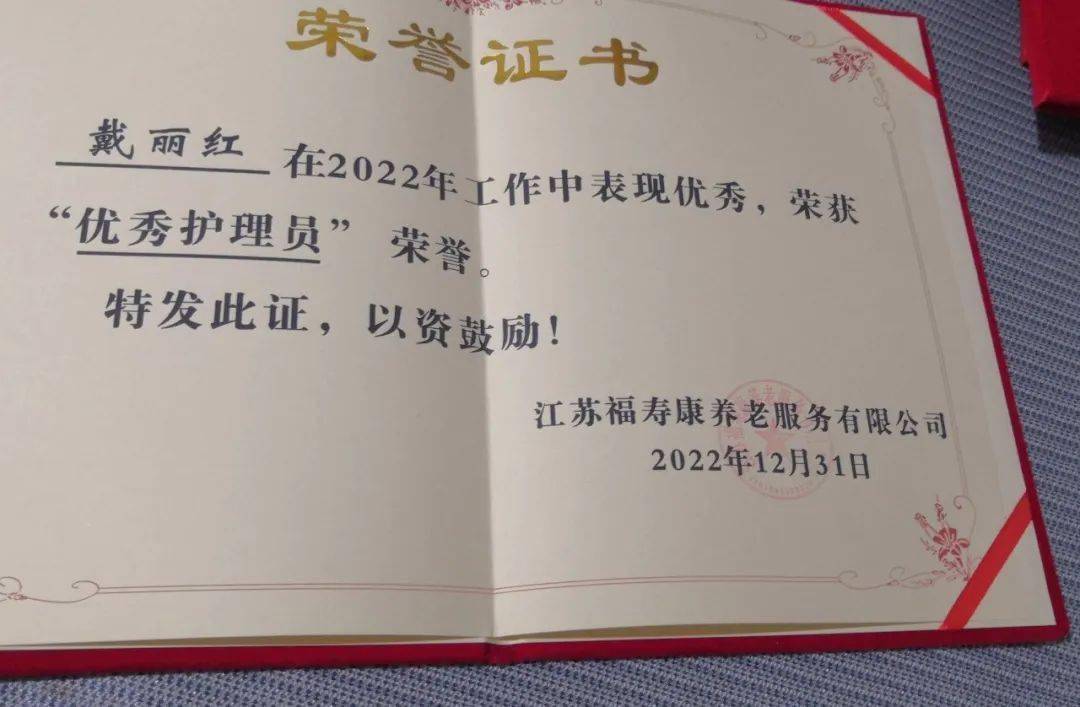 荣誉证书
戴丽红 在2022年工作中表现优秀，荣获
“优秀护理员” 荣誉。
特发此证，以资鼓励！
江苏福寿康养老服务有限公司
2022年12月31日